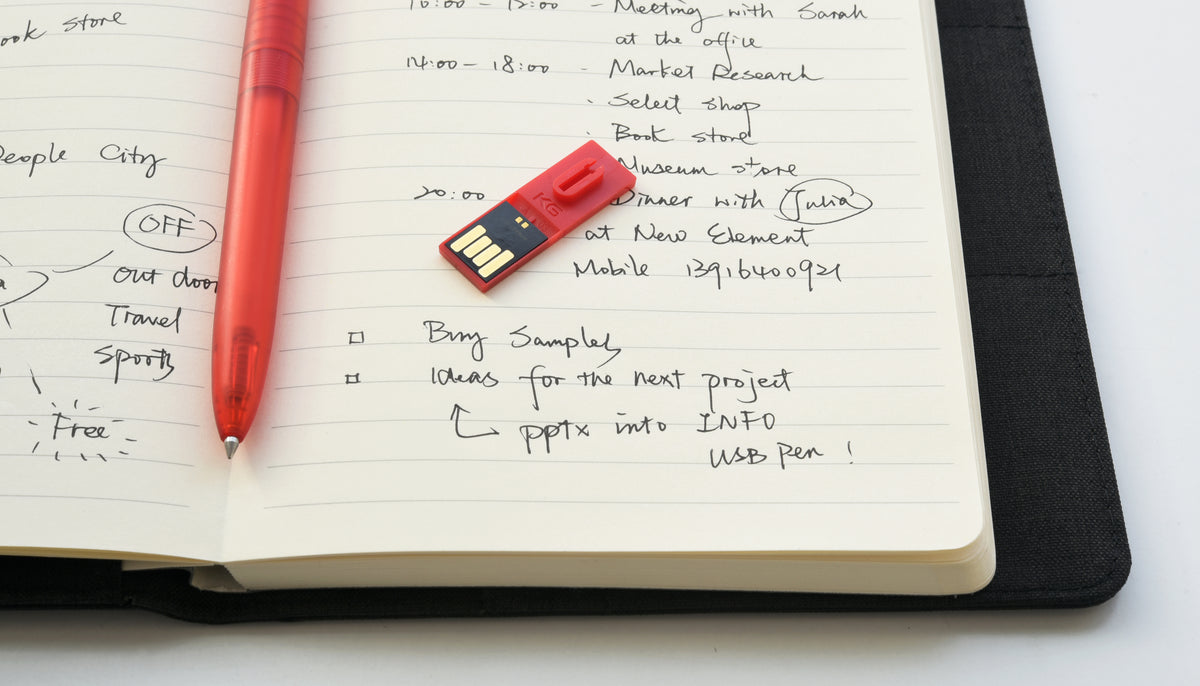 ook store
People City
OFF
out door
Travel
Sports
Free
Meeting with Sarah
at the office
14:00 - 18:00 - Market Research
· Select shop
· Book store
Museum store
20:00 Dinner with Julia
at New Element
Mobile 13916400921
□ Buy Samples
□ Ideas for the next project
pptx into INFO
USB Pen !
KG